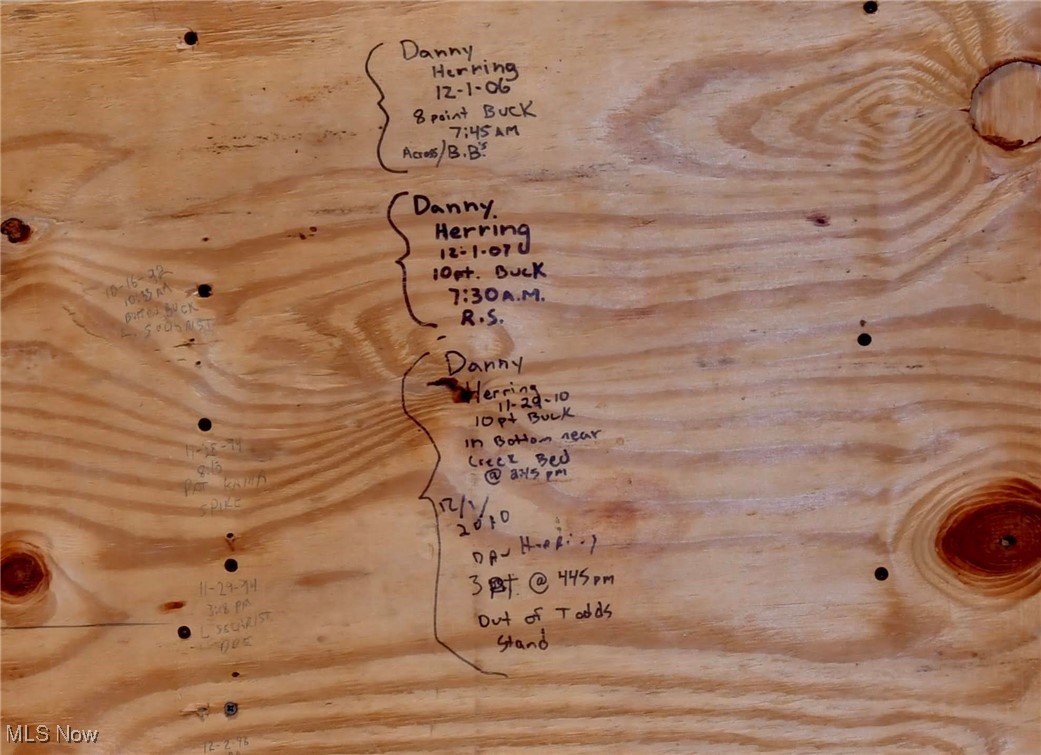 Danny
Herring
12-1-06
8 point BUCK
7:45 AM
Across/B.B's
Danny
Herring
12-1-07
10pt. BUCK
7:30 A.M.
R.S.
Danny
Herring
11-29-10
10pt BUCK
in Bottom near
Creek Bed
@ 2:45 pm
12/1/
2010
3 pt. @ 445 pm
Out of Todds
Stand
10-16-92
10:35 AM
BUTTON BUCK
L. SECHRIST
11-28-94
8:15
PAT
SPIKE
11-29-94
3:18 PM
L SECHRIST
DOE
12-2-96
MLS Now